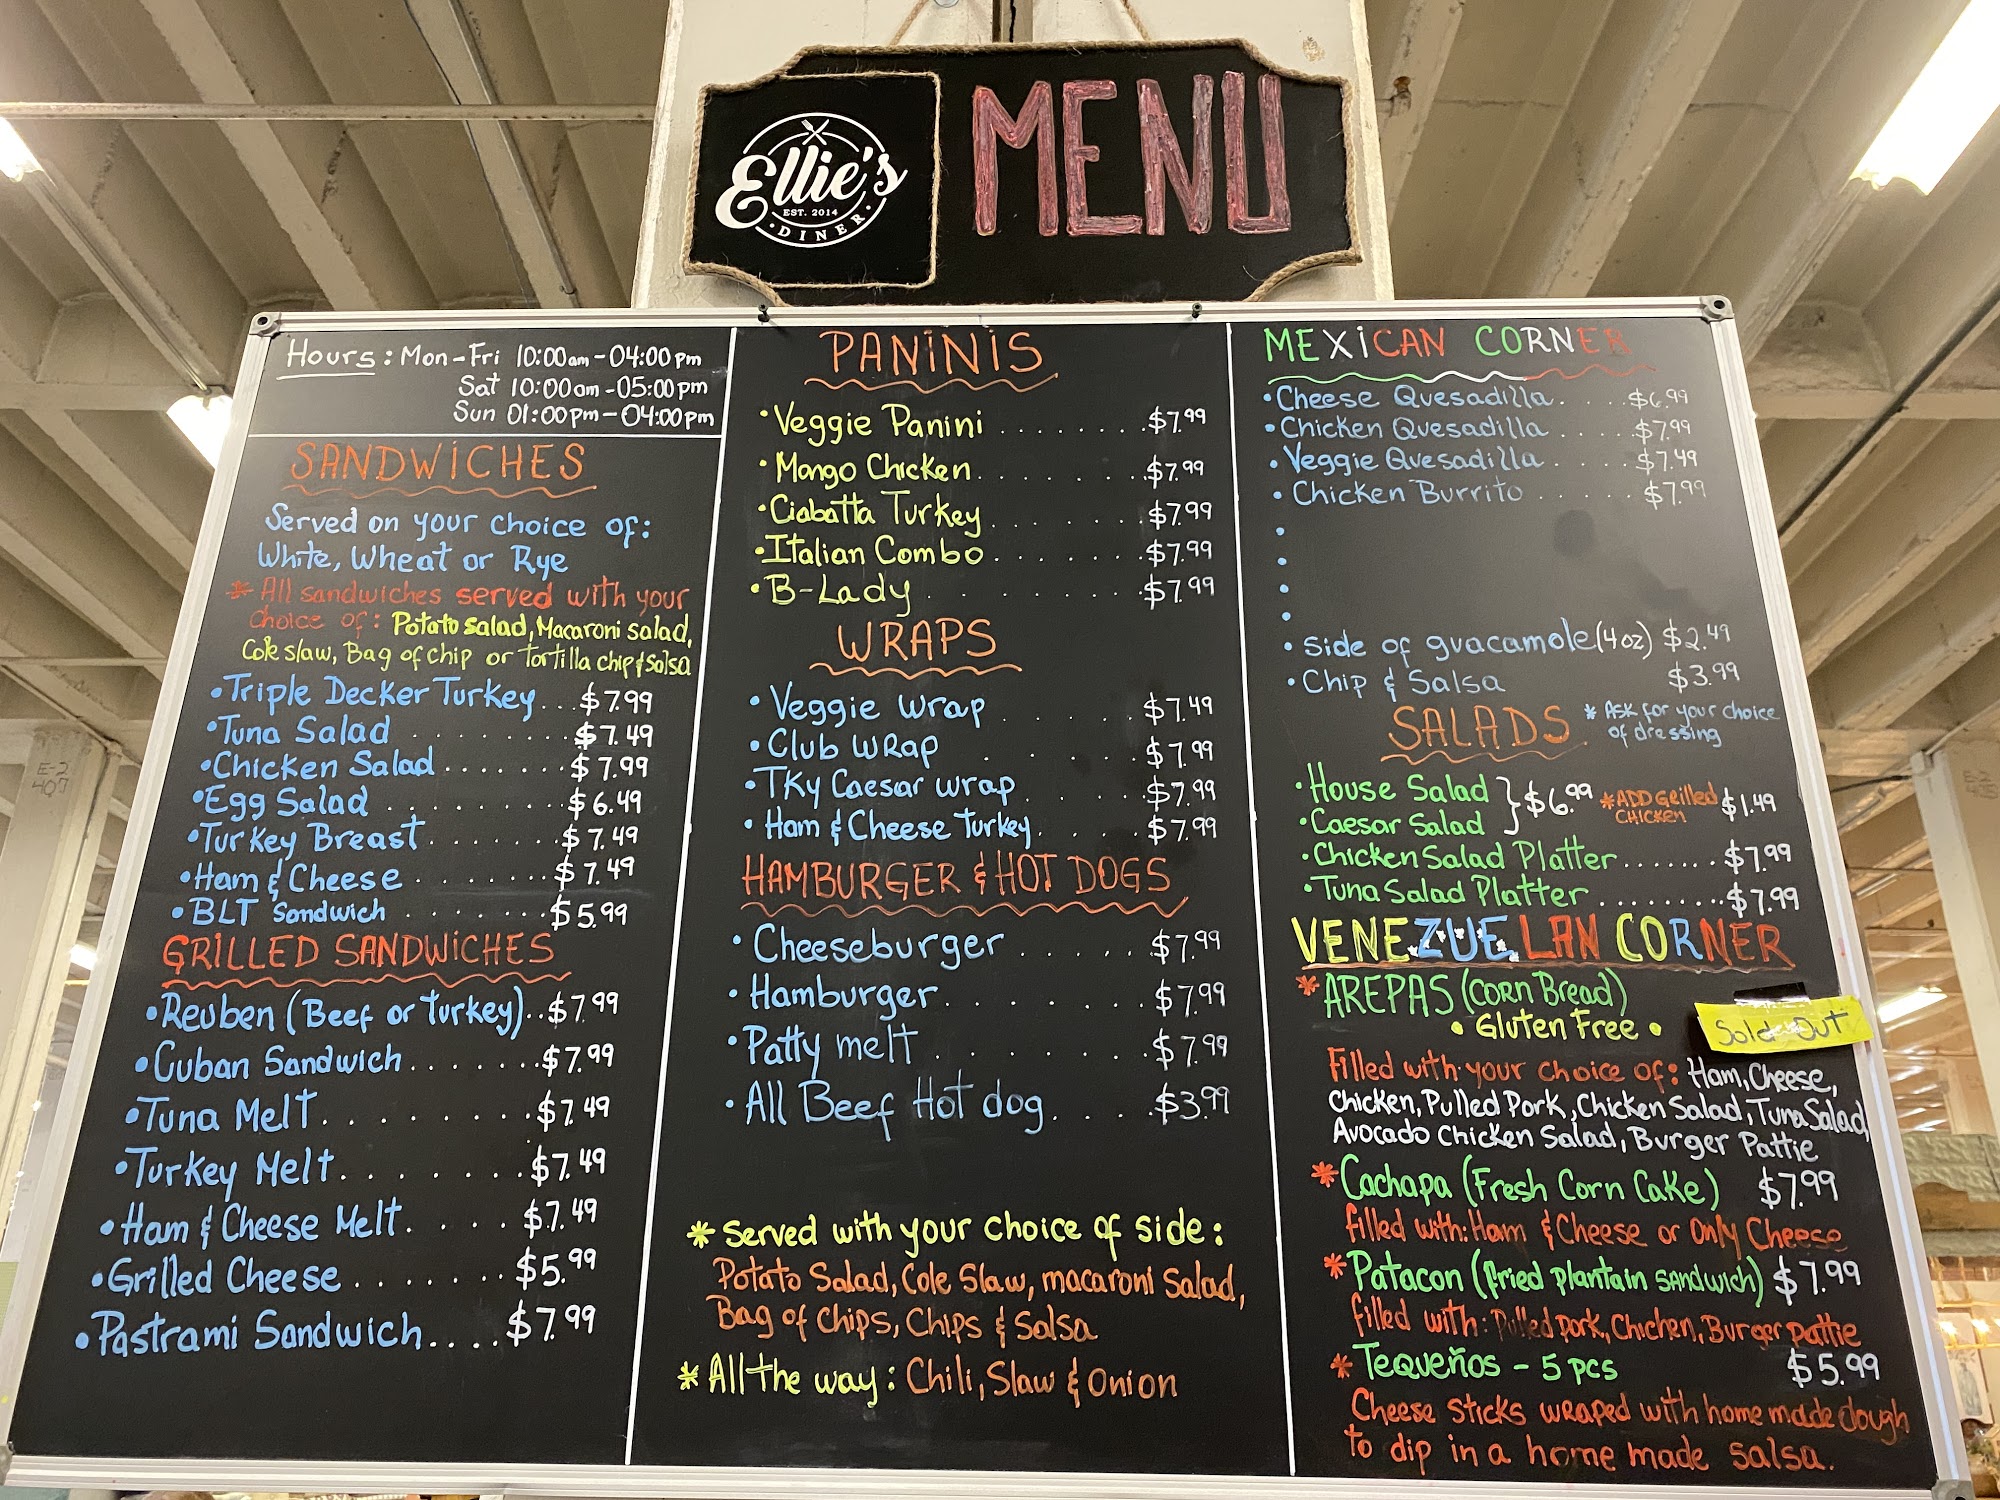 Ellie's
EST. 2014
DINER
MENU
Hours: Mon-Fri 10:00am-04:00pm
Sat 10:00am-05:00pm
Sun 01:00pm-04:00pm
SANDWiCHES
Served on your choice of:
White, Wheat or Rye
* All sandwiches served with your
choice of: Potato salad, Macaroni salad,
Cole slaw, Bag of chip or tortilla chip & salsa
•Triple Decker Turkey...$7.99
•Tuna Salad ........$7.49
•Chicken Salad.......$7.99
•Egg Salad ........$6.49
•Turkey Breast.......$7.49
•Ham & Cheese ........$7.49
•BLT Sandwich ........$5.99
GRiLLED SANDWiCHES
•Reuben (Beef or turkey)..$7.99
•Cuban Sandwich......$7.99
•Tuna Melt.........$7.49
•Turkey Melt........$7.49
•Ham & Cheese Melt.....$7.49
•Grilled Cheese.......$5.99
•Pastrami Sandwich....$7.99
PANiNiS
•Veggie Panini ........$7.99
•Mango Chicken........$7.99
•Ciabatta Turkey.......$7.99
•Italian Combo........$7.99
•B-Lady.........$7.99
WRAPS
•Veggie wrap......$7.49
•Club WRap ......$7.99
•TKy Caesar wrap.....$7.99
•Ham & Cheese Turkey.....$7.99
HAMBURGER & HOT DOGS
•Cheeseburger .....$7.99
•Hamburger........$7.99
•Patty melt ........$7.99
•All Beef Hot dog.....$3.99
* Served with your choice of side:
Potato Salad, Cole Slaw, macaroni Salad,
Bag of Chips, Chips & Salsa
* All the way: Chili, Slaw & Onion
MEXiCAN CORNER
•Cheese Quesadilla....$6.99
•Chicken Quesadilla.....$7.99
•Veggie Quesadilla.....$7.49
•Chicken Burrito.....$7.99
•Side of guacamole (4oz) $2.49
•Chip & Salsa $3.99
SALADS * Ask for your choice
of dressing
•House Salad
•Caesar Salad } $6.99 *ADD Grilled CHICKEN $1.49
•Chicken Salad Platter......$7.99
•Tuna Salad Platter........$7.99
VENEZUELAN CORNER
*AREPAS (CORN Bread)
• Gluten Free •
Sold Out
Filled with your choice of: Ham, Cheese,
Chicken, Pulled Pork, Chicken Salad, Tuna Salad,
Avocado Chicken Salad, Burger Pattie
*Cachapa (Fresh Corn Cake) $7.99
filled with: Ham & Cheese or Only Cheese
*Patacon (fried plantain sandwich) $7.99
filled with: Pulled pork, Chichen, Burger pattie
*Tequeños - 5 pcs $5.99
Cheese sticks wraped with home made dough
to dip in a home made salsa.